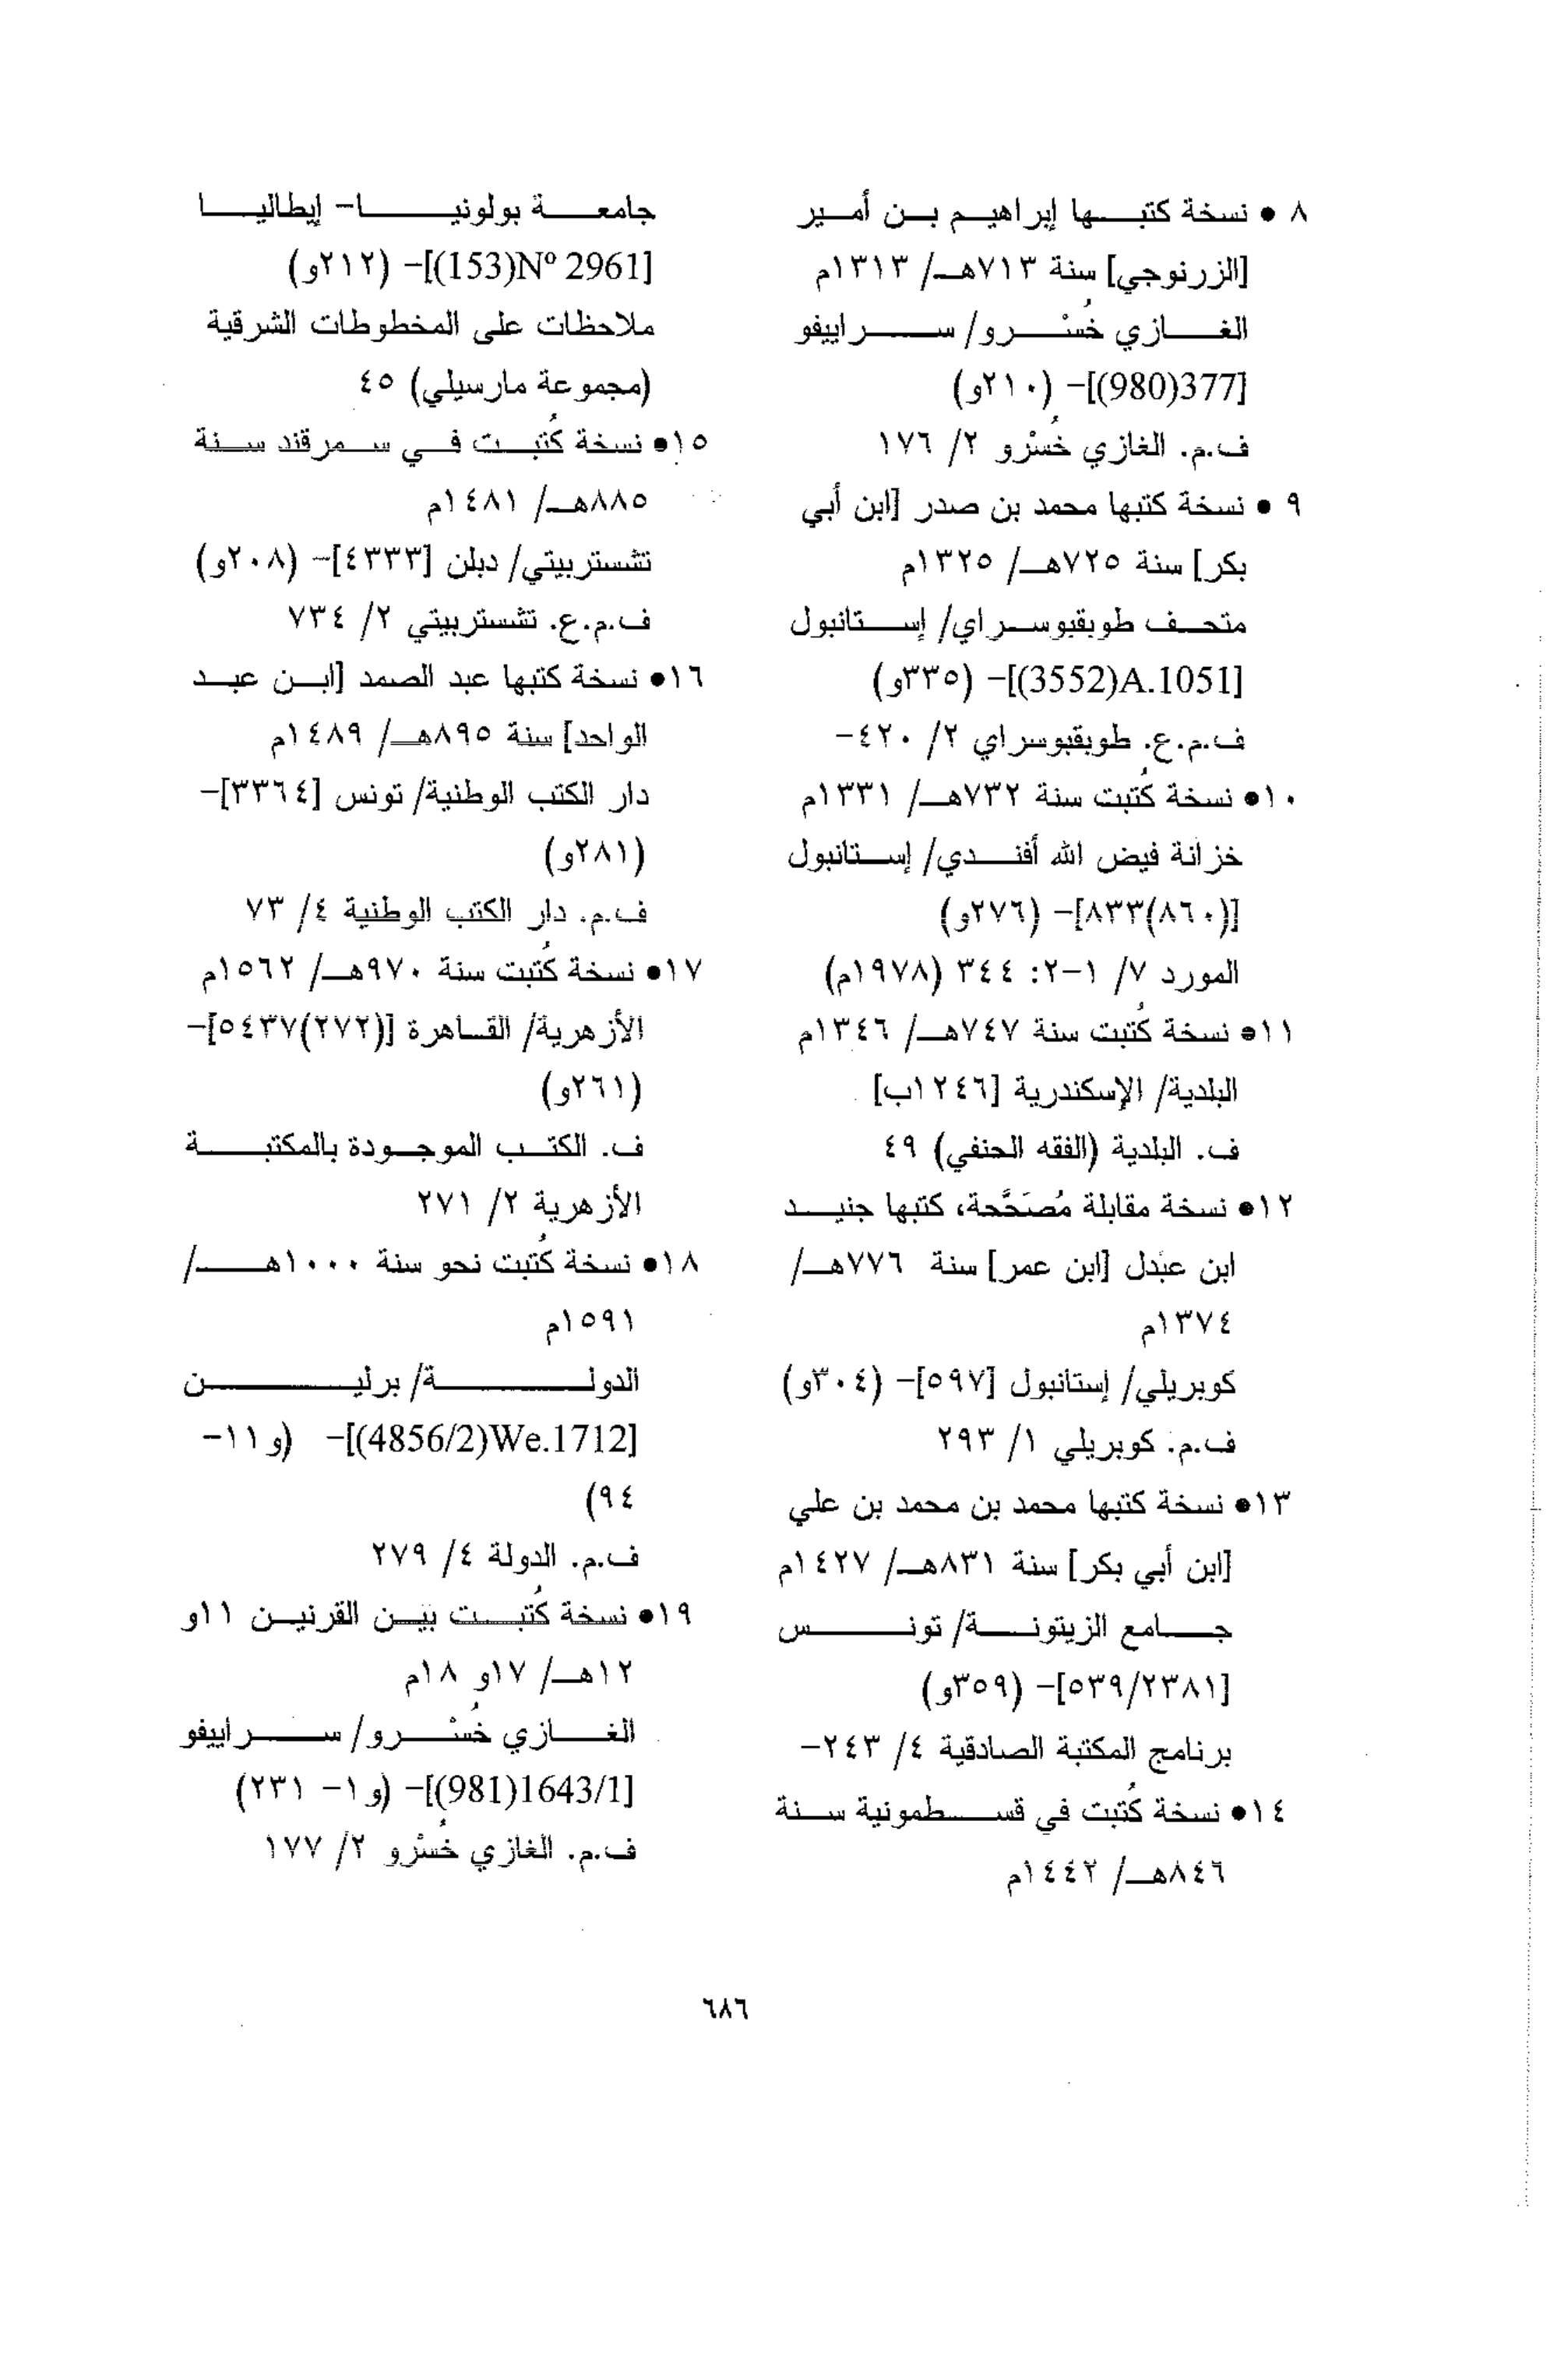 ٨ • نسخة كتبها إبراهيم بن أمير
[الزرنوجي] سنة ٧١٣هـ/ ١٣١٣م
الغازي خُسْرو/ سراييفو
[377(980)]- (٢١٠و)
ف.م. الغازي خُسْرو ٢/ ١٧٦
٩ • نسخة كتبها محمد بن صدر [ابن أبي
بكر] سنة ٧٢٥هـ/ ١٣٢٥م
متحف طوبقبوسراي/ إستانبول
[A.1051(3552)]- (٣٣٥و)
ف.م.ع. طوبقبوسراي ٢/ ٤٢٠-
١٠• نسخة كُتبت سنة ٧٣٢هـ/ ١٣٣١م
خزانة فيض الله أفندي/ إستانبول
[(٨٦٠)٨٣٣]- (٢٧٦و)
المورد ٧/ ١-٢: ٣٤٤ (١٩٧٨م)
١١• نسخة كُتبت سنة ٧٤٧هـ/ ١٣٤٦م
البلدية/ الإسكندرية [١٢٤٦ب]
ف. البلدية (الفقه الحنفي) ٤٩
١٢• نسخة مقابلة مُصَحَّحة، كتبها جنيد
ابن عبدل [ابن عمر] سنة ٧٧٦هـ/
١٣٧٤م
كوبريلي/ إستانبول [٥٩٧]- (٣٠٤و)
ف.م. كوبريلي ١/ ٢٩٣
١٣• نسخة كتبها محمد بن محمد بن علي
[ابن أبي بكر] سنة ٨٣١هـ/ ١٤٢٧م
جامع الزيتونة/ تونس
[٥٣٩/٢٣٨١]- (٣٥٩و)
برنامج المكتبة الصادقية ٤/ ٢٤٣-
١٤• نسخة كُتبت في قسطمونية سنة
٨٤٦هـ/ ١٤٤٢م
جامعة بولونيا- إيطاليا
[Nº 2961(153)]- (٢١٢و)
ملاحظات على المخطوطات الشرقية
(مجموعة مارسيلي) ٤٥
١٥• نسخة كُتبت في سمرقند سنة
٨٨٥هـ/ ١٤٨١م
تشستربيتي/ دبلن [٤٣٣٣]- (٢٠٨و)
ف.م.ع. تشستربيتي ٢/ ٧٣٤
١٦• نسخة كتبها عبد الصمد [ابن عبد
الواحد] سنة ٨٩٥هـ/ ١٤٨٩م
دار الكتب الوطنية/ تونس [٣٣٦٤]-
(٢٨١و)
ف.م. دار الكتب الوطنية ٤/ ٧٣
١٧• نسخة كُتبت سنة ٩٧٠هـ/ ١٥٦٢م
الأزهرية/ القاهرة [(٢٧٢)٥٤٣٧]-
(٢٦١و)
ف. الكتب الموجودة بالمكتبة
الأزهرية ٢/ ٢٧١
١٨• نسخة كُتبت نحو سنة ١٠٠٠هـ/
١٥٩١م
الدولة/ برلين
[We.1712(4856/2)]- (و١١-
٩٤)
ف.م. الدولة ٤/ ٢٧٩
١٩• نسخة كُتبت بين القرنين ١١و
١٢هـ/ ١٧و ١٨م
الغازي خُسْرو/ سراييفو
[1643/1(981)]- (و١- ٢٣١)
ف.م. الغازي خُسْرو ٢/ ١٧٧
٦٨٦